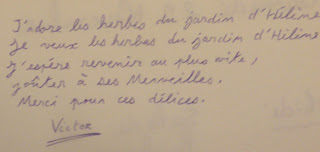 J'adore les herbes du jardin d'Hélène
je veux les herbes du jardin d'Hélène
J'espère revenir au plus vite,
goûter à ses Merveilles.
Merci pour ces délices.
Victor